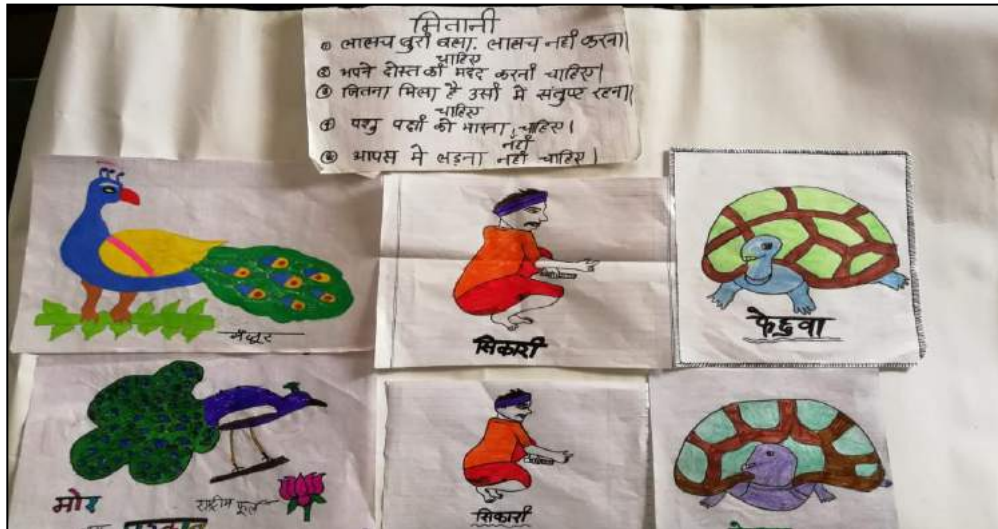 मितानी
① लालच बुरी बला. लालच नहीं करना
चाहिए
② अपने दोस्त की मदद करनी चाहिए।
③ जितना मिला है उसी में संतुष्ट रहना
चाहिए
④ पशु पक्षी को मारना चाहिए।
नहीं
⑤ आपस मे लड़ना नहीं चाहिए।
सिकारी
केछुवा
मोर
राष्ट्रीय फूल
सिकारी